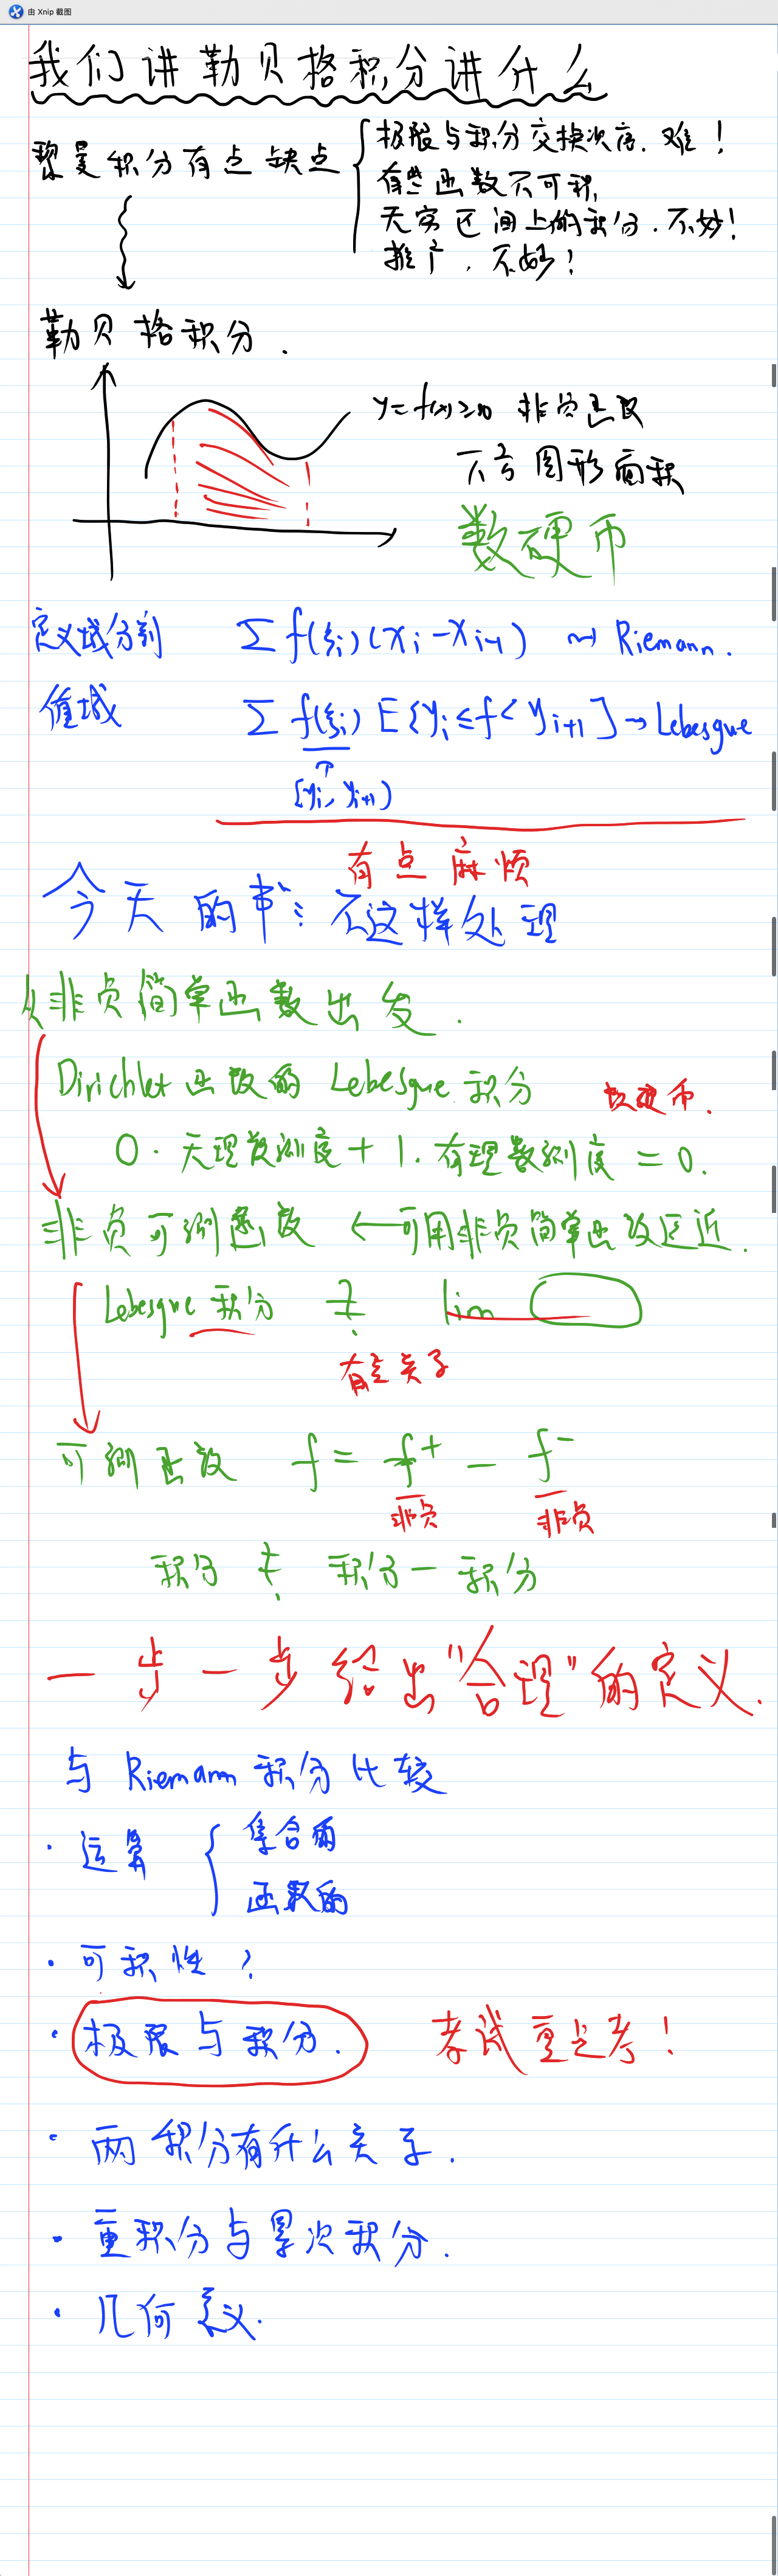 由 Xnip 截图
我们讲勒贝格积分讲什么
黎曼积分有点缺点
极限与积分交换次序.难!
有些函数不可积,
无穷区间上的积分.不妙!
推广.不妙!
勒贝格积分.
y=f(x)≥0 非负函数
下方图形面积
数硬币
定义域分割 Σ f(ξi)(xi-xi-1) ⇝ Riemann.
值域 Σ f(ξi) E[yi≤f<yi+1] → Lebesgue
↑
[yi, yi+1)
有点麻烦
今天的书:不这样处理
从非负简单函数出发.
Dirichlet函数的 Lebesgue 积分 数硬币.
0·无理数测度+1.有理数测度=0.
非负可测函数 ←可用非负简单函数逼近.
Lebesgue 积分 lim
可测函数 f=f⁺-f⁻
非负 非负
积分 积分-积分
一步一步给出"合理"的定义.
与 Riemann 积分比较
· 运算
集合的
函数的
· 可积性?
· 极限与积分. 考试重点考!
· 两积分有什么关系.
· 重积分与累次积分.
· 几何意义.